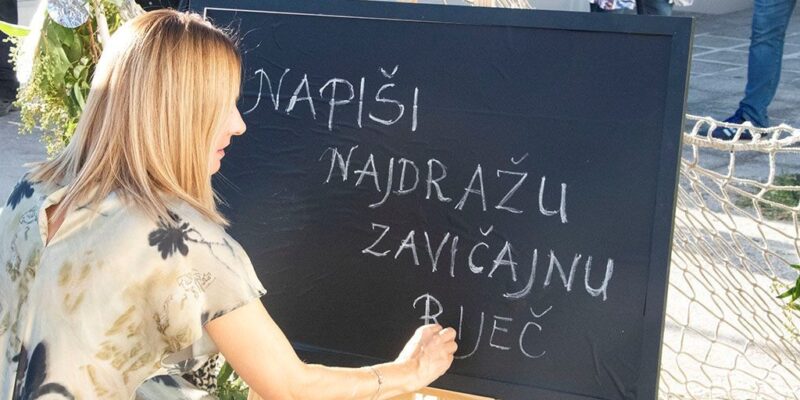 NAPIŠI
NAJDRAŽU
ZAVIČAJNU
RIJEČ